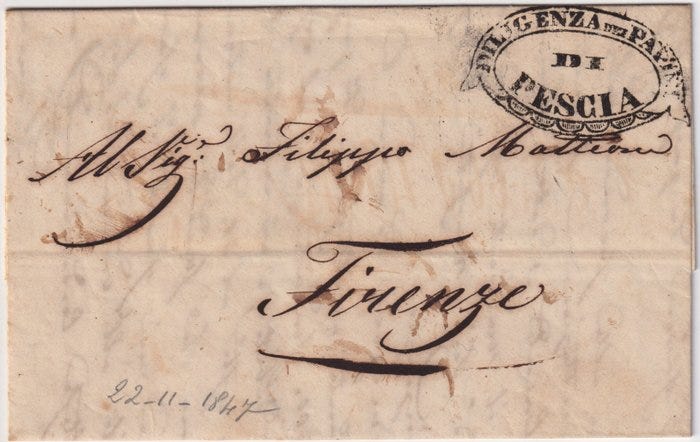 DILIGENZA DEI PAPINI
DI
PESCIA
Al Sig.r Filippo Matteoni
Firenze
22-11-1847